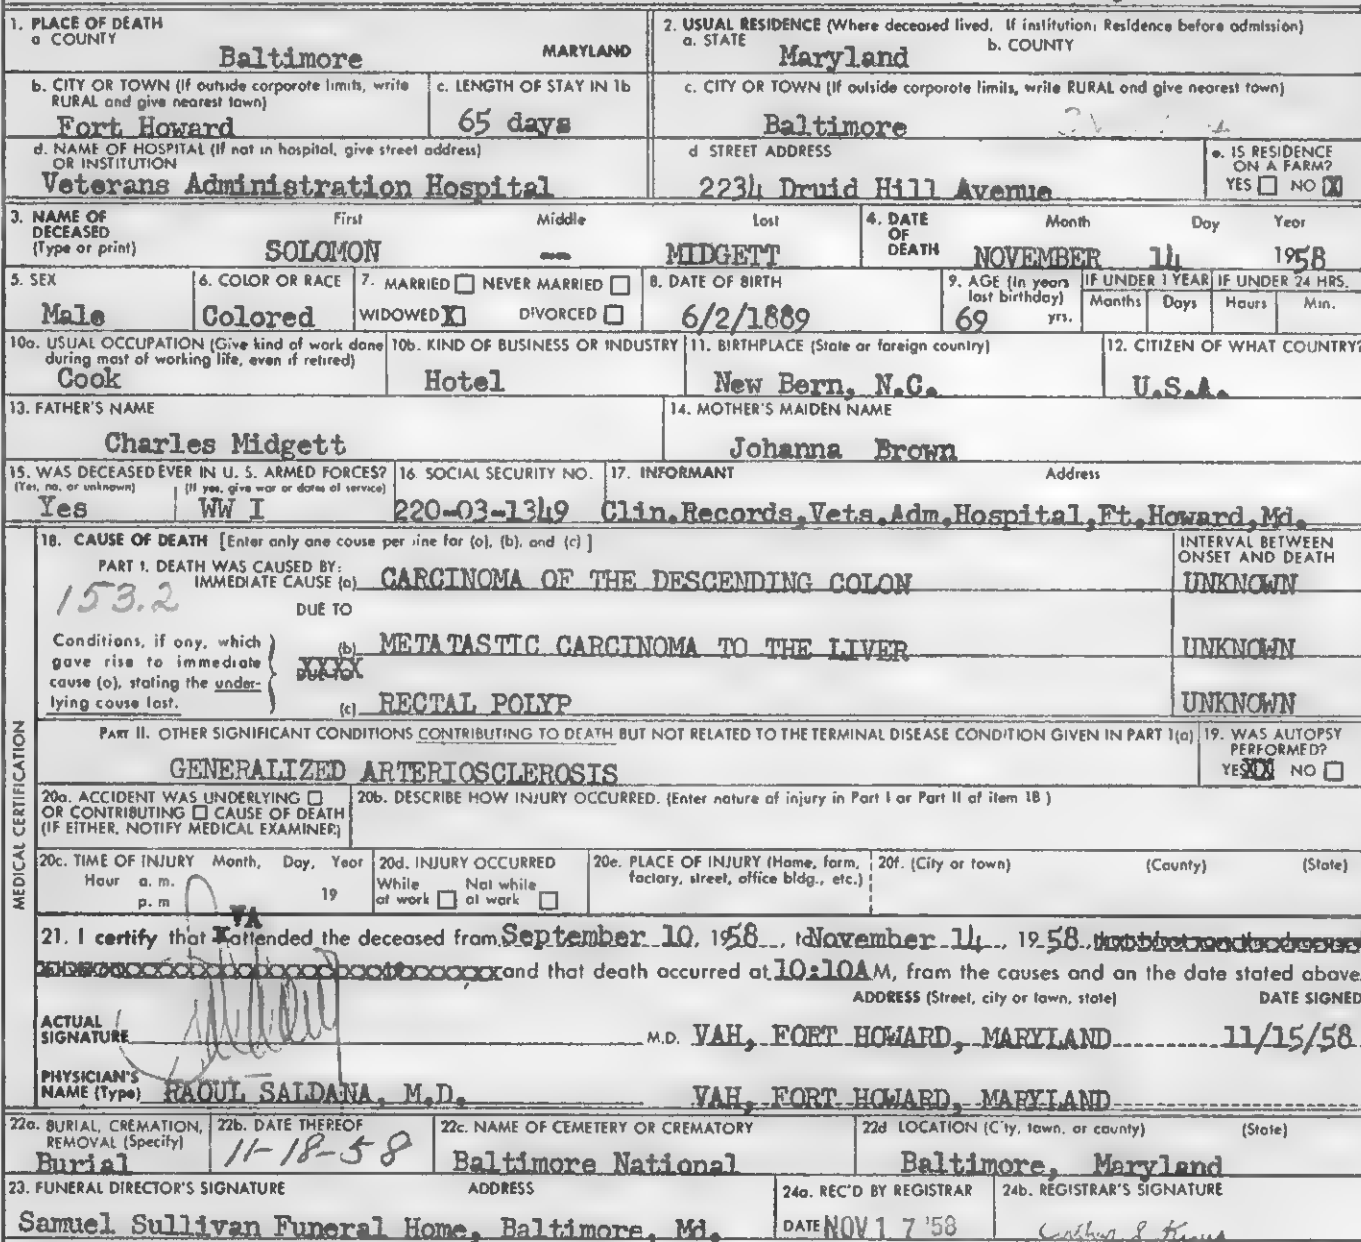 1. PLACE OF DEATH
a COUNTY
Baltimore MARYLAND
2. USUAL RESIDENCE (Where deceased lived. If institution: Residence before admission)
a. STATE b. COUNTY
Maryland
b. CITY OR TOWN (If outside corporate limits, write RURAL and give nearest town)
Fort Howard
c. LENGTH OF STAY IN 1b
65 days
c. CITY OR TOWN (If outside corporate limits, write RURAL and give nearest town)
Baltimore
d. NAME OF HOSPITAL (If not in hospital, give street address)
OR INSTITUTION
Veterans Administration Hospital
d STREET ADDRESS
2234 Druid Hill Avenue
e. IS RESIDENCE
ON A FARM?
YES NO X
3. NAME OF
DECEASED
(Type or print)
First Middle Last
SOLOMON — MIDGETT
4. DATE
OF
DEATH
Month Day Year
NOVEMBER 14 1958
5. SEX
Male
6. COLOR OR RACE
Colored
7. MARRIED NEVER MARRIED
WIDOWED X DIVORCED
8. DATE OF BIRTH
6/2/1889
9. AGE (In years
last birthday)
69 yrs.
IF UNDER 1 YEAR IF UNDER 24 HRS.
Months Days Hours Min.
10a. USUAL OCCUPATION (Give kind of work done
during most of working life, even if retired)
Cook
10b. KIND OF BUSINESS OR INDUSTRY
Hotel
11. BIRTHPLACE (State or foreign country)
New Bern, N.C.
12. CITIZEN OF WHAT COUNTRY?
U.S.A.
13. FATHER'S NAME
Charles Midgett
14. MOTHER'S MAIDEN NAME
Johanna Brown
15. WAS DECEASED EVER IN U. S. ARMED FORCES?
(Yes, no, or unknown) (If yes, give war or dates of service)
Yes WW I
16. SOCIAL SECURITY NO.
220-03-1349
17. INFORMANT Address
Clin.Records,Vets.Adm,Hospital,Ft.Howard,Md.
MEDICAL CERTIFICATION
18. CAUSE OF DEATH [Enter only one cause per line for (a), (b), and (c) ]
INTERVAL BETWEEN
ONSET AND DEATH
PART I. DEATH WAS CAUSED BY:
IMMEDIATE CAUSE (a) CARCINOMA OF THE DESCENDING COLON UNKNOWN
153.2
DUE TO
Conditions, if any, which
gave rise to immediate
cause (a), stating the under-
lying cause last.
(b) METATASTIC CARCINOMA TO THE LIVER UNKNOWN
XXXX
(c) RECTAL POLYP UNKNOWN
PART II. OTHER SIGNIFICANT CONDITIONS CONTRIBUTING TO DEATH BUT NOT RELATED TO THE TERMINAL DISEASE CONDITION GIVEN IN PART 1(a)
GENERALIZED ARTERIOSCLEROSIS
19. WAS AUTOPSY
PERFORMED?
YES XX NO
20a. ACCIDENT WAS UNDERLYING
OR CONTRIBUTING CAUSE OF DEATH
(IF EITHER, NOTIFY MEDICAL EXAMINER)
20b. DESCRIBE HOW INJURY OCCURRED. (Enter nature of injury in Part I or Part II of item 18 )
20c. TIME OF INJURY Month, Day, Year
Hour a. m.
p. m 19
20d. INJURY OCCURRED
While at work Not while at work
20e. PLACE OF INJURY (Home, farm,
factory, street, office bldg., etc.)
20f. (City or town) (County) (State)
VA
21. I certify that X attended the deceased from September 10, 1958, to November 14, 1958,
and that death occurred at 10:10AM, from the causes and on the date stated above
ADDRESS (Street, city or town, state) DATE SIGNED
ACTUAL
SIGNATURE M.D. VAH, FORT HOWARD, MARYLAND 11/15/58
PHYSICIAN'S
NAME (Type) RAOUL SALDANA, M.D. VAH, FORT HOWARD, MARYLAND
22a. BURIAL, CREMATION,
REMOVAL (Specify)
Burial
22b. DATE THEREOF
11-18-58
22c. NAME OF CEMETERY OR CREMATORY
Baltimore National
22d LOCATION (City, town, or county) (State)
Baltimore, Maryland
23. FUNERAL DIRECTOR'S SIGNATURE ADDRESS
Samuel Sullivan Funeral Home, Baltimore, Md.
24a. REC'D BY REGISTRAR
DATE NOV 17 '58
24b. REGISTRAR'S SIGNATURE